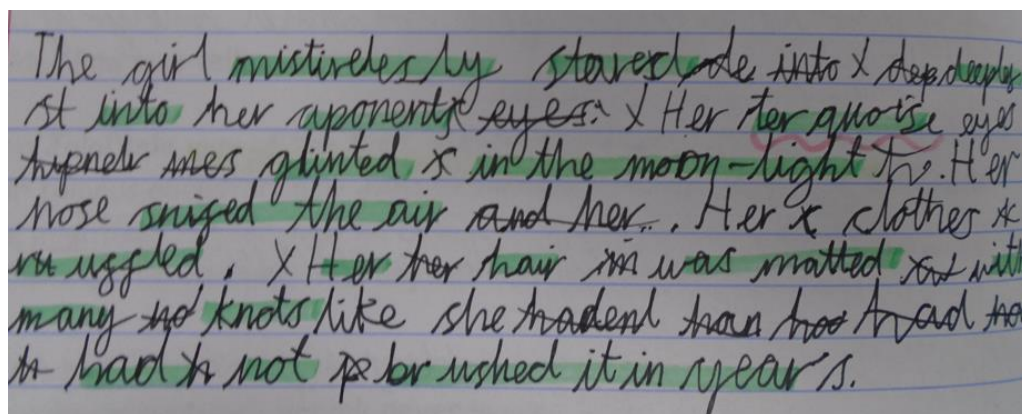 The girl mistirelesly stared into deeples
st into her aponents eyes. Her terquoise eyes
glinted in the moon-light. Her
nose sniged the air and her.. Her clothes
ruggled. Her her hair was matted with
many knots like she had
had not brushed it in years.